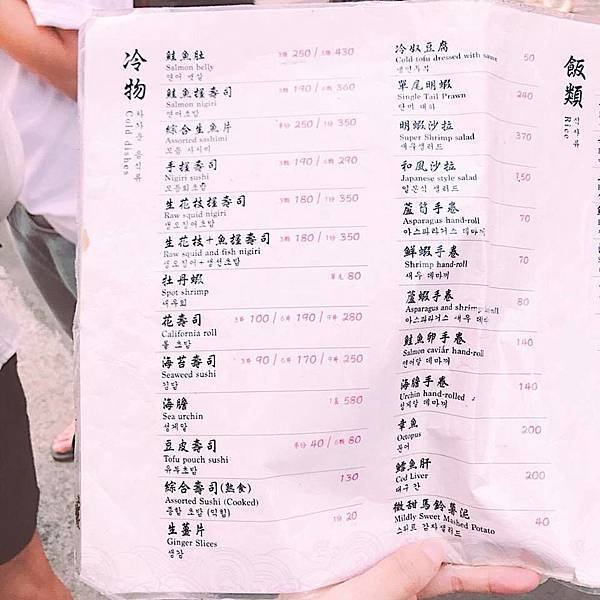 冷物
차가운 음식류
Cold dishes
鮭魚肚 3條 250 / 5條 430
Salmon belly
연어 뱃살
鮭魚握壽司 3顆 190 / 6顆 360
Salmon nigiri
연어초밥
綜合生魚片 半份 250 / 1份 350
Assorted sashimi
모듬 사시미
手握壽司 190 / 290
Nigiri sushi
모듬회초밥
生花枝握壽司 3顆 180 / 350
Raw squid nigiri
생오징어초밥
生花枝+魚握壽司 3顆 180 / 350
Raw squid and fish nigiri
생오징어+생선초밥
牡丹蝦 單尾 80
Spot shrimp
새우회
花壽司 3件 100 / 6件 190 / 9件 280
California roll
롤 초밥
海苔壽司 3件 90 / 6件 170 / 9件 250
Seaweed sushi
김밥
海膽 1盒 580
Sea urchin
성게알
豆皮壽司 半份 40 / 6顆 80
Tofu pouch sushi
유부초밥
綜合壽司(熟食) 130
Assorted Sushi (Cooked)
종합 초밥 (익힘)
生薑片 1份 20
Ginger Slices
생강
冷奴豆腐 50
Cold tofu dressed with sauce
냉연두부
單尾明蝦 240
Single Tail Prawn
단미 대하
明蝦沙拉 370
Super Shrimp salad
새우샐러드
和風沙拉 150
Japanese style salad
일본식 샐러드
蘆筍手卷 70
Asparagus hand-roll
아스파라거스 데마끼
鮮蝦手卷 70
Shrimp hand-roll
새우 데마끼
蘆蝦手卷 80
Asparagus and shrimp handroll
아스파라거스 새우 데마
鮭魚卵手卷 140
Salmon caviár hand-roll
연어알 데마끼
海膽手卷 140
Urchin hand-rolled
성게알 데마끼
章魚 200
Octopus
문어
鱈魚肝 200
Cod Liver
대구 간
微甜馬鈴薯泥 40
Mildly Sweet Mashed Potato
스위트 감자샐러드
飯類
식사류
Rice